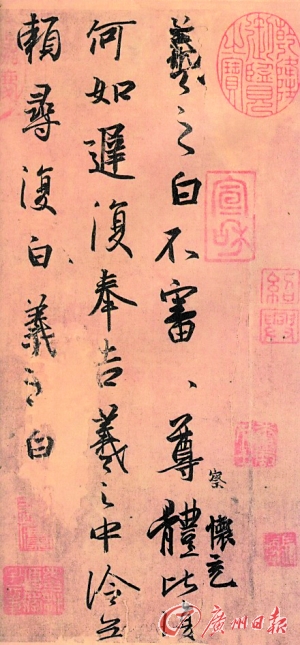 羲之白不審、尊體比復
察
懷充
何如遲復奉告羲之中冷無
賴尋復白羲之白
宣和
紹興
廣州日報